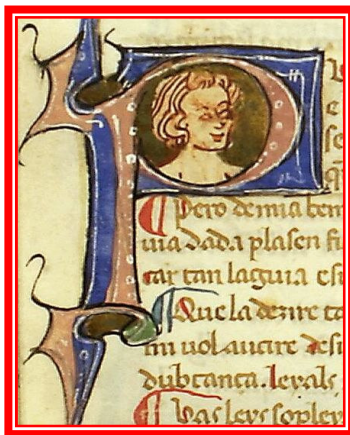 P
e
se
¶ Pero de mia ben
uia dada plasen fi
tar tan laguia esi
¶ Que la dezire co
mi uol aucire desi
dubtanca. leyals
¶ Vas leys sopley